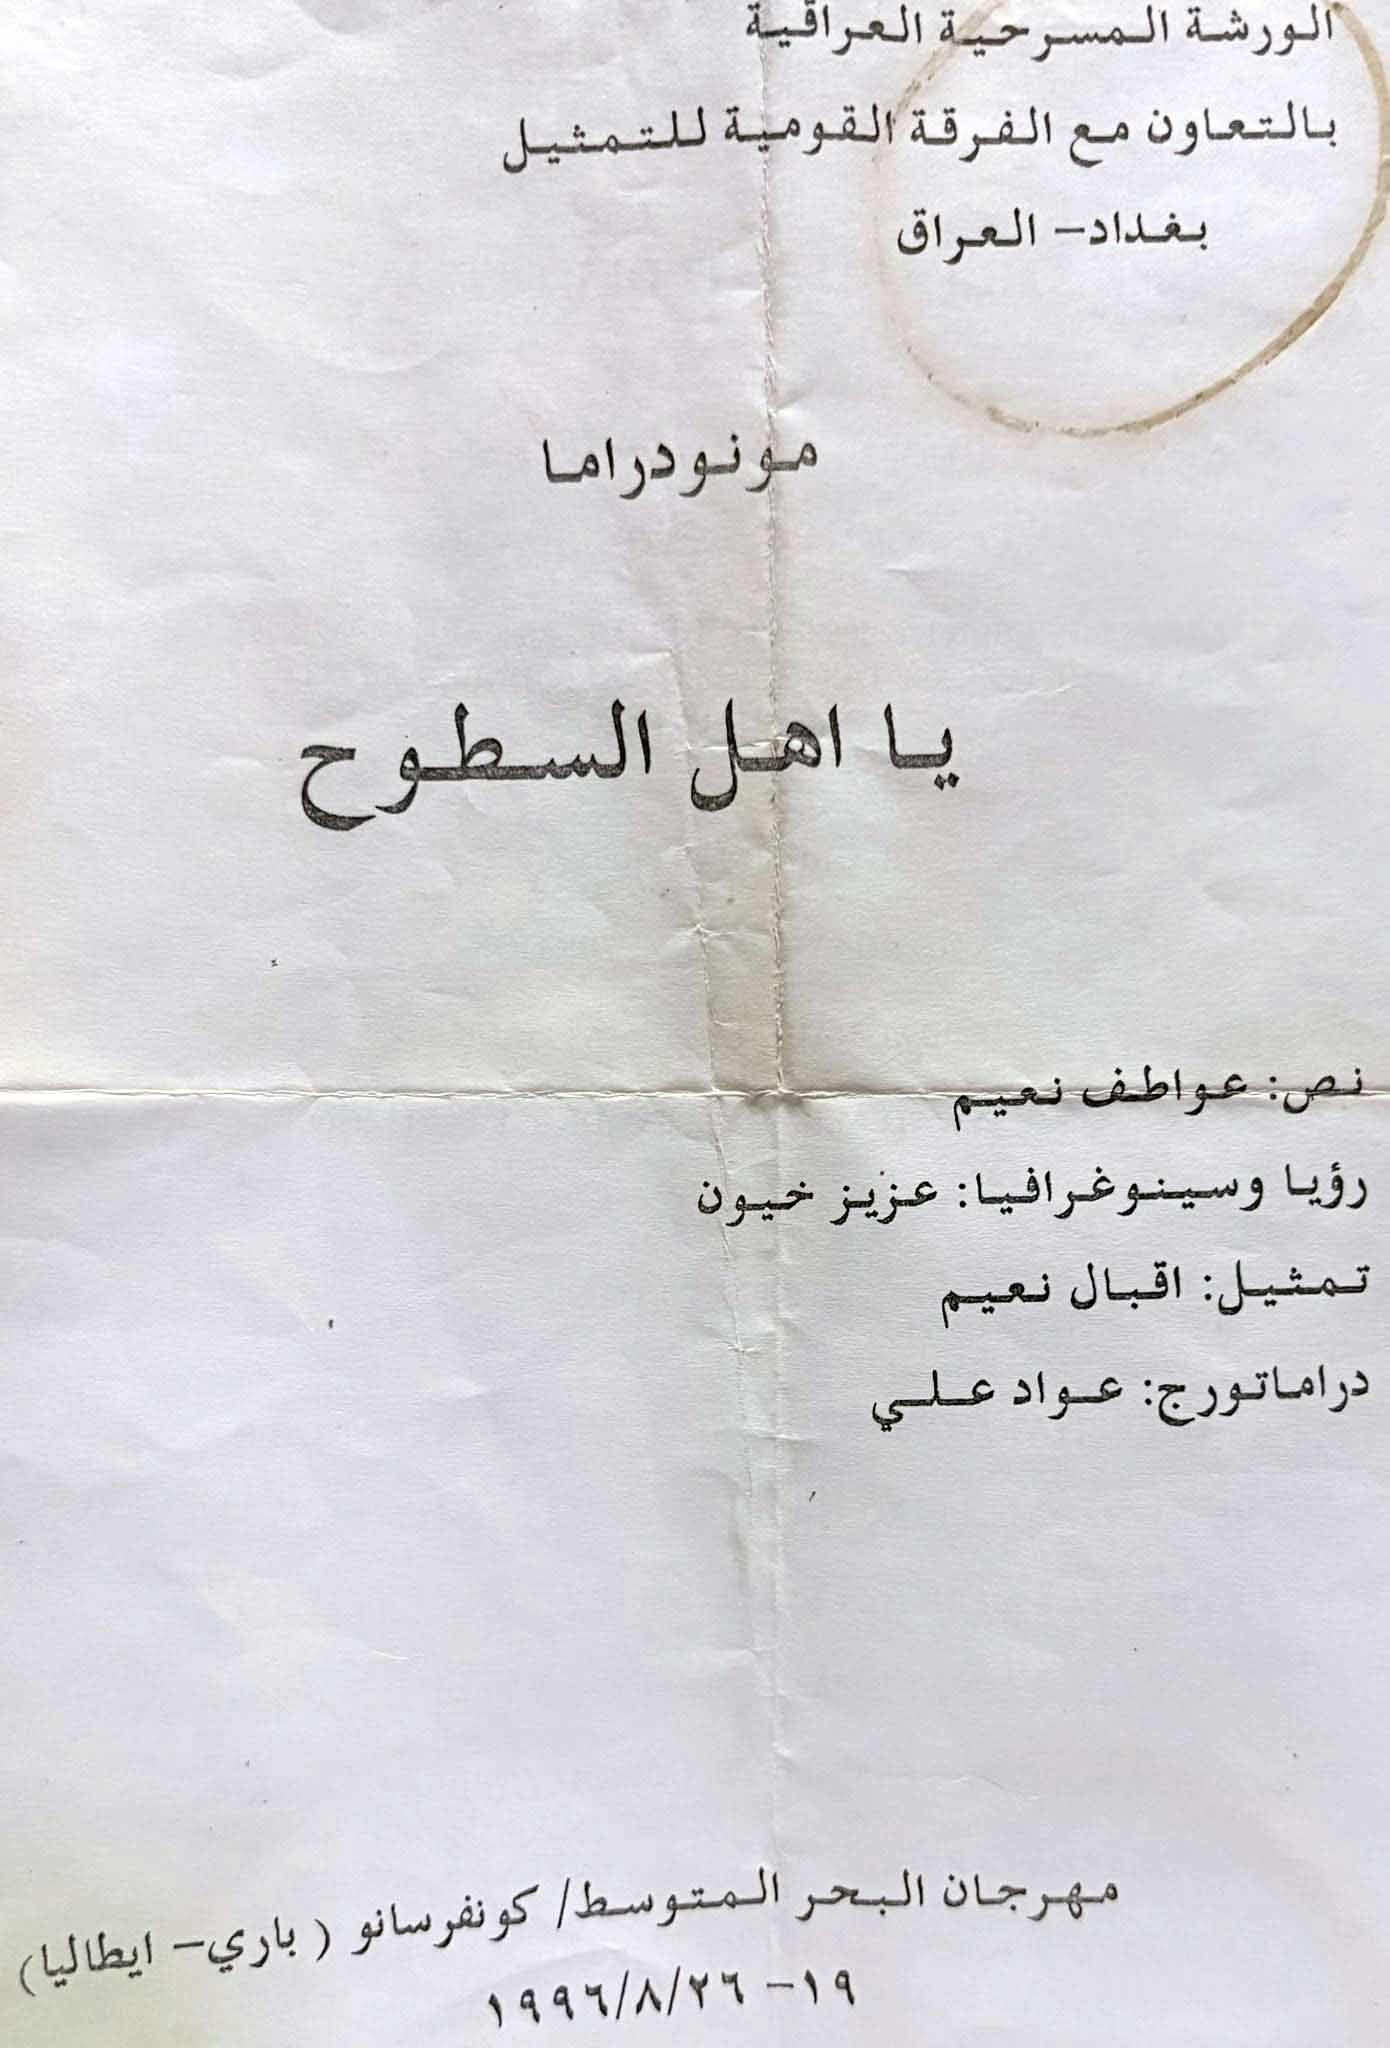 الورشة المسرحية العراقية
بالتعاون مع الفرقة القومية للتمثيل
بغداد- العراق
مونودراما
يا اهل السطوح
نص: عواطف نعيم
رؤيا وسينوغرافيا: عزيز خيون
تمثيل: اقبال نعيم
دراماتورج: عواد علي
مهرجان البحر المتوسط/ كونفرسانو ( باري- ايطاليا)
١٩- ١٩٩٦/٨/٢٦